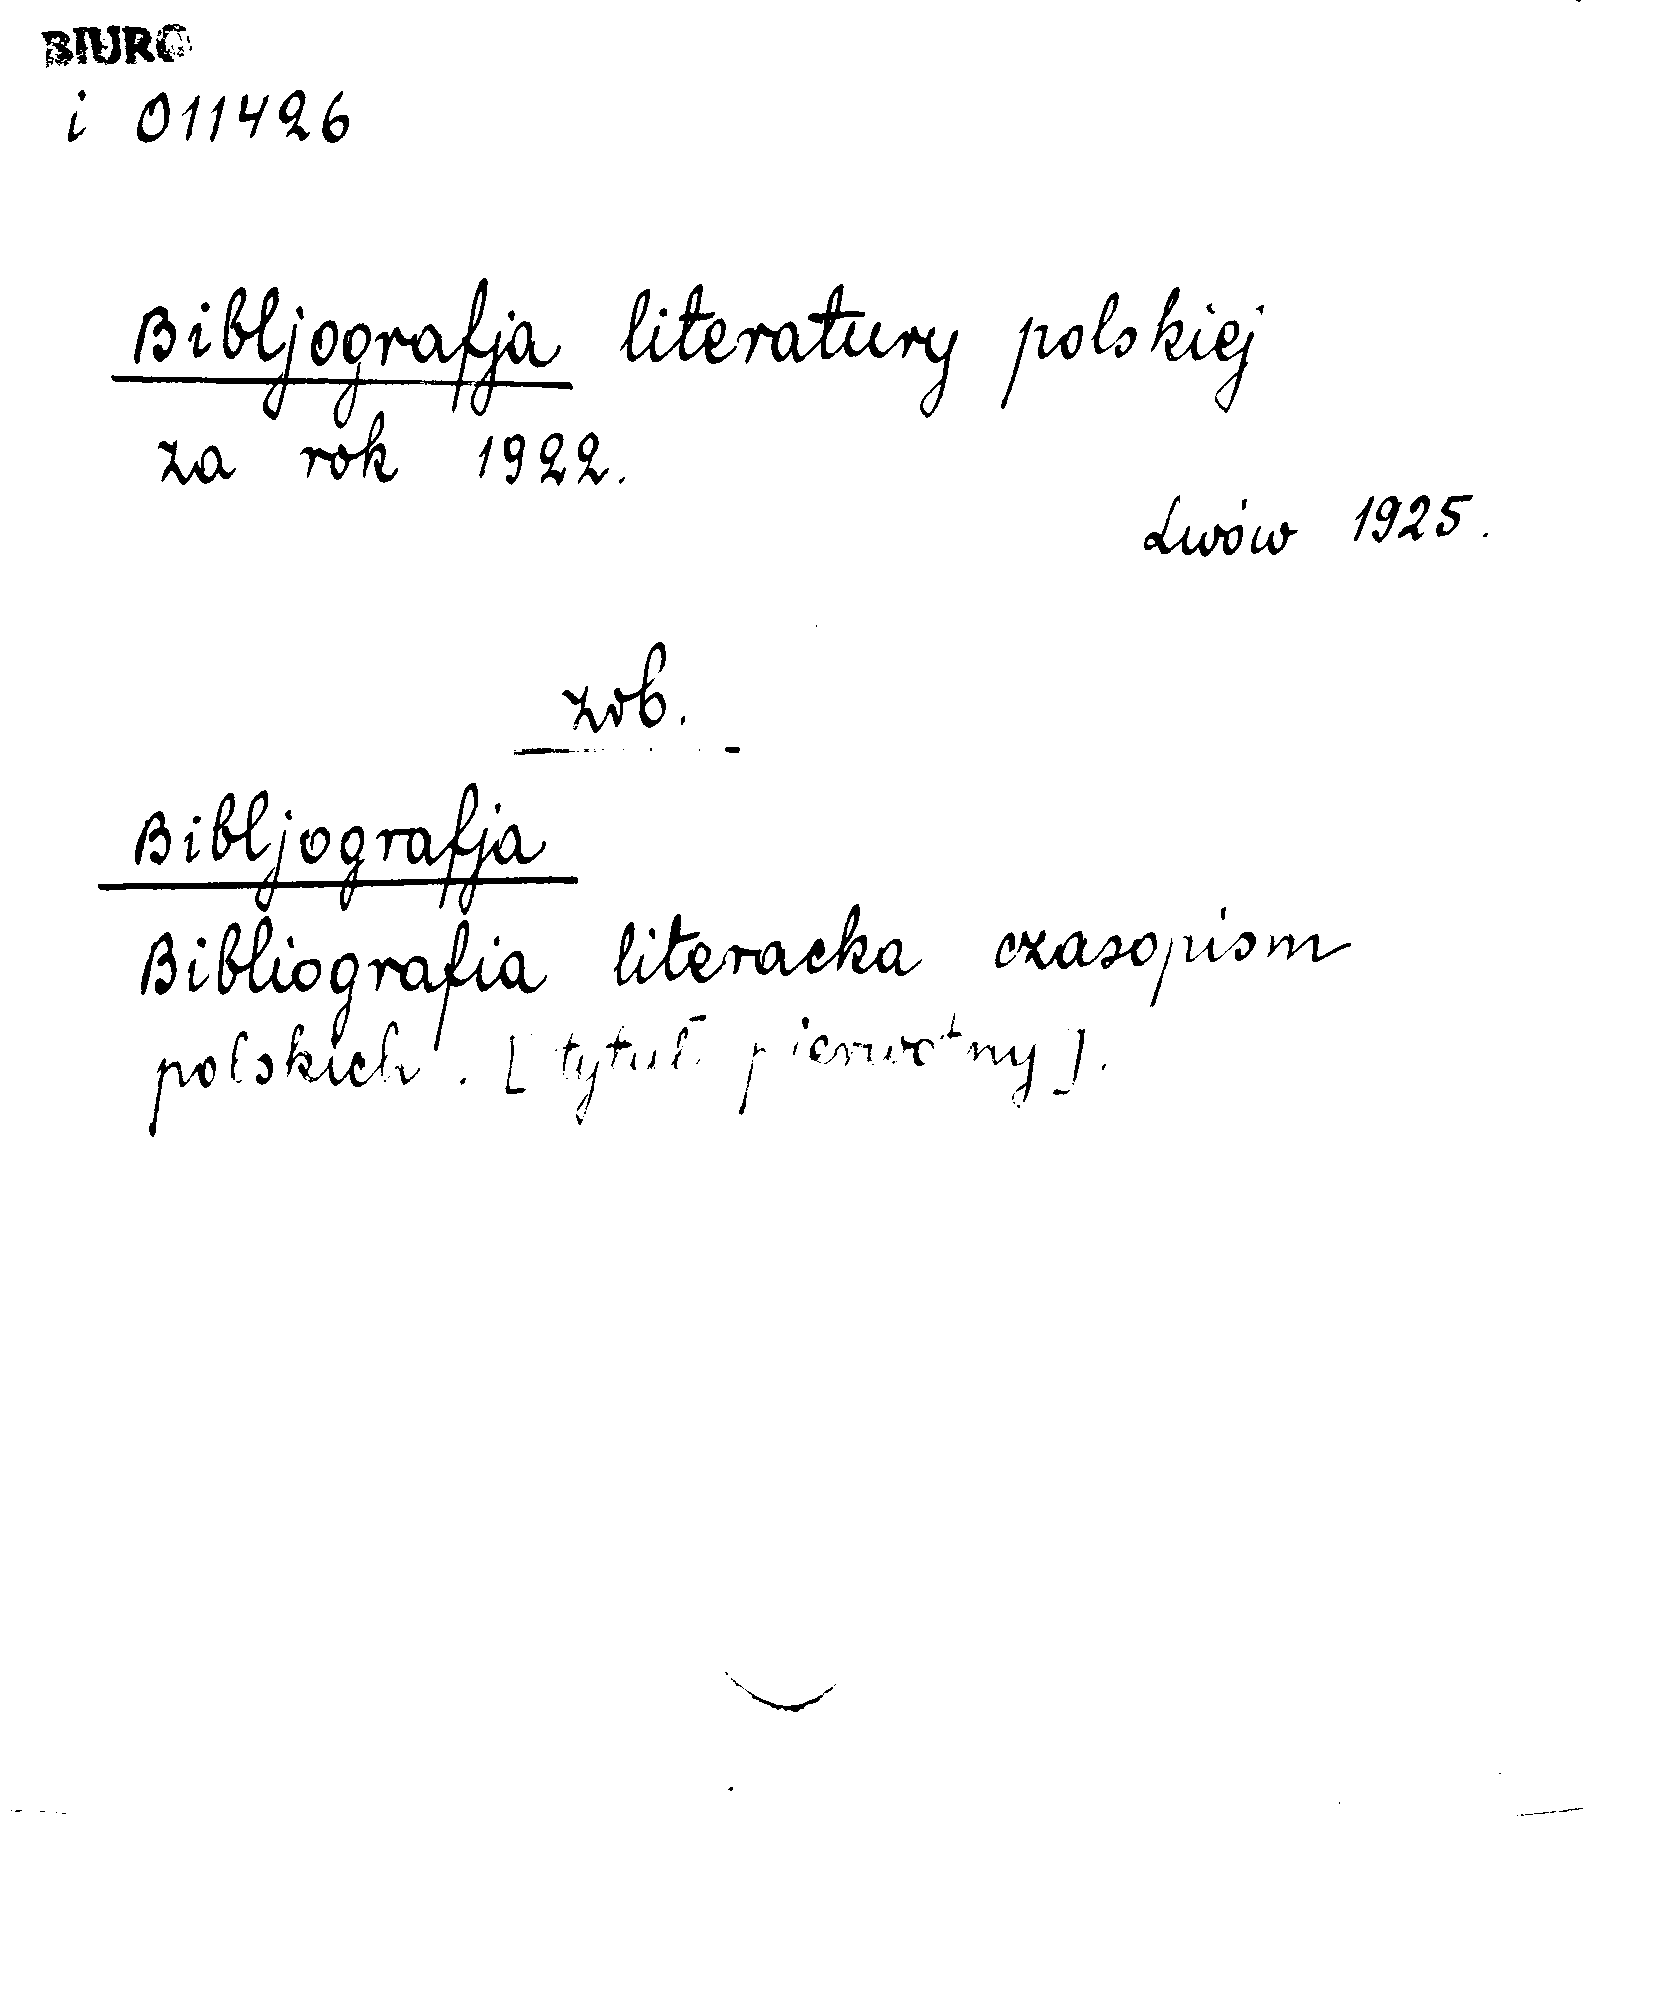 BIURO
i 011426
Bibljografja literatury polskiej
za rok 1922.
Lwów 1925.
zob.
Bibljografja
Bibliografia literacka czasopism
polskich. [tytuł pierwotny].